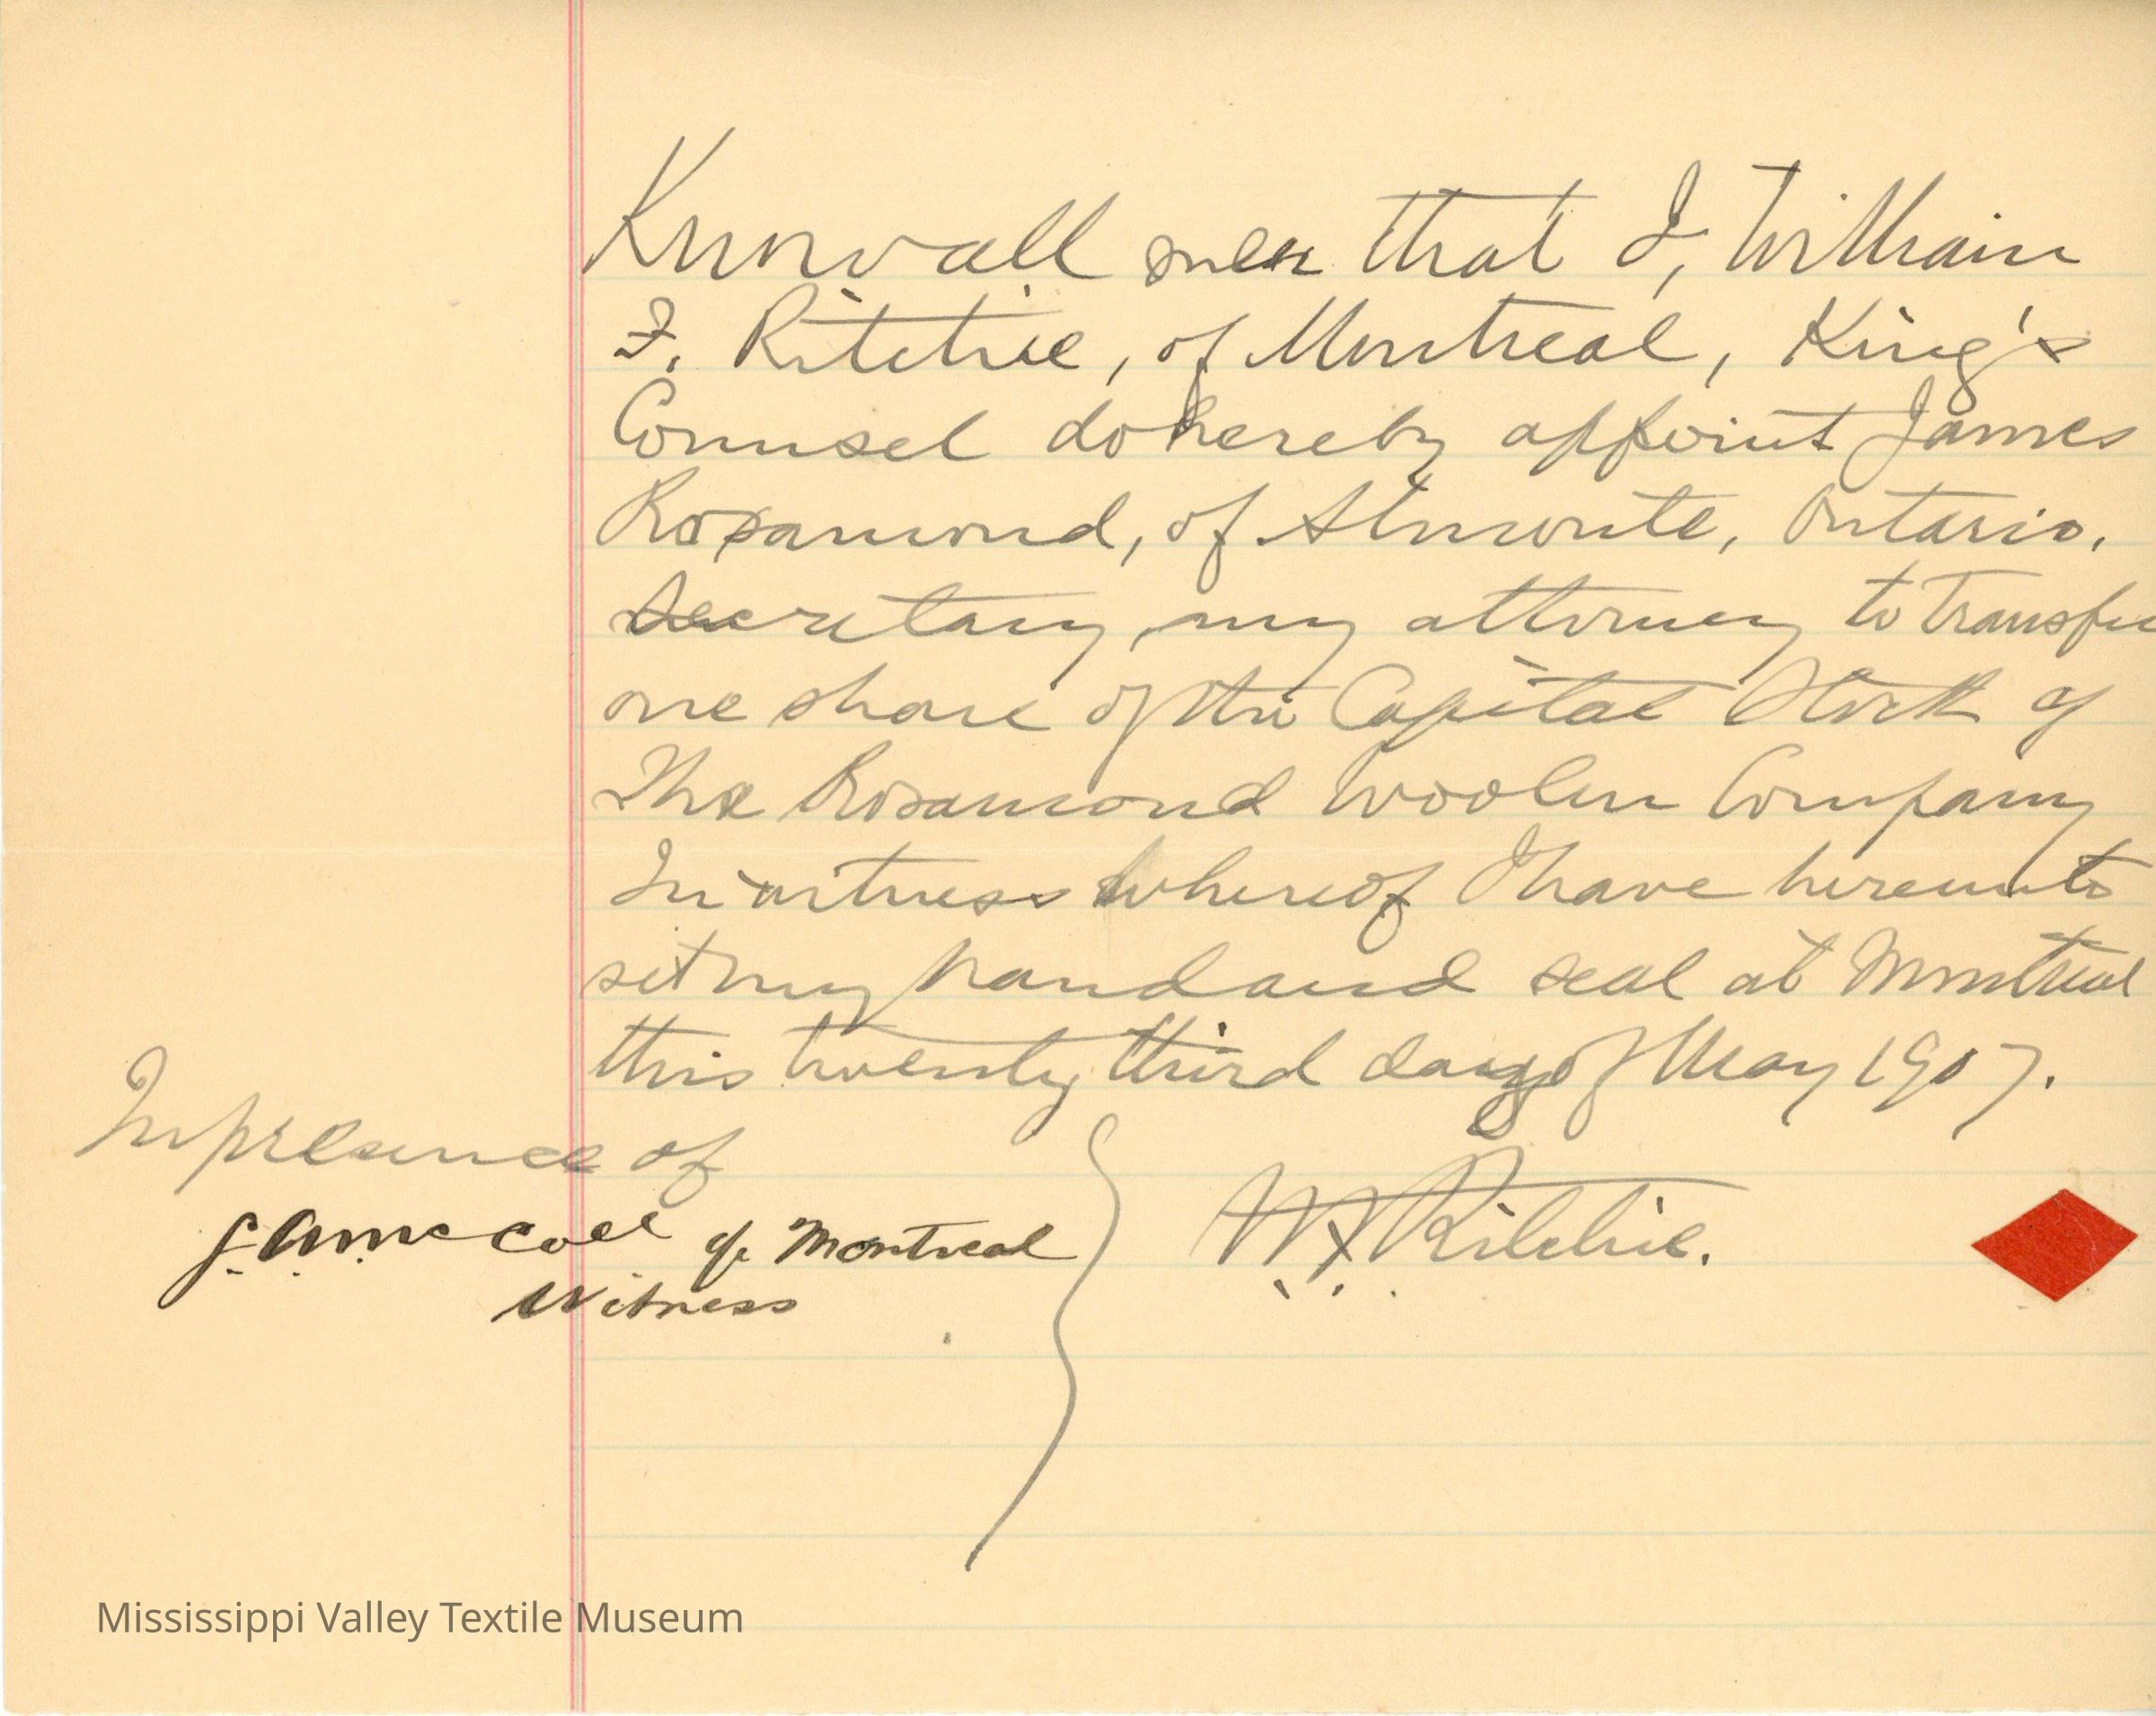 Know all men that I, William
F. Ritchie, of Montreal, King's
Counsel do hereby appoint James
Rosamond, of Almonte, Ontario,
Secretary, my attorney to transfer
one share of the Capital Stock of
The Rosamond Woolen Company
In witness whereof I have hereunto
set my hand and seal at Montreal
this twenty third day of May 1907.
In presence of
of Montreal
Witness
W F Ritchie.
Mississippi Valley Textile Museum